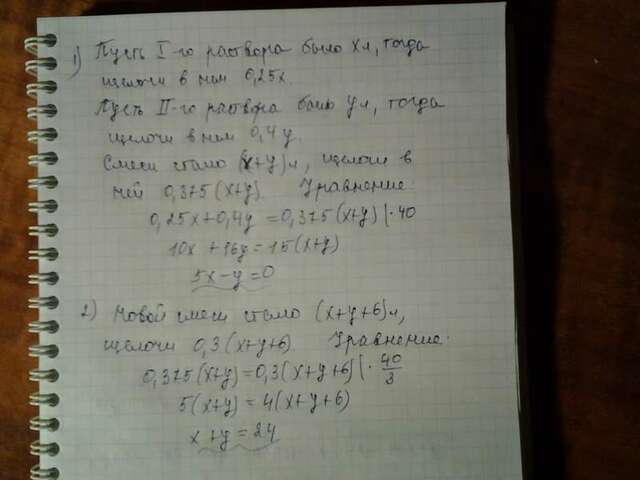 1) Пусть I-го раствора было х л, тогда
щелочи в нем 0,25х.
Пусть II-го раствора было у л, тогда
щелочи в нем 0,4у.
Смеси стало (х+у) л, щелочи в
ней 0,375(х+у). Уравнение:
0,25х+0,4у=0,375(х+у)|·40
10х+16у=15(х+у)
5х-у=0
2) Новой смеси стало (х+у+6) л,
щелочи 0,3(х+у+6). Уравнение:
0,375(х+у)=0,3(х+у+6)|·40/3
5(х+у)=4(х+у+6)
х+у=24